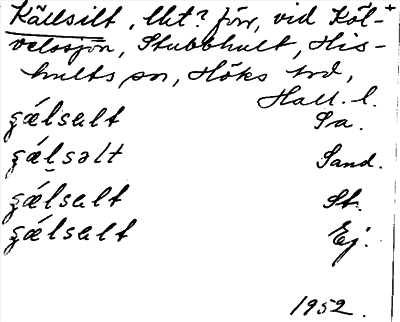 Källsilt, lht? förr, vid Köl-+
velssjön, Stubbhult, His-
hults sn, Höks hrd,
Hall. l.
gǽlsεlt Sa.
gǽlsəlt Sand.
gǽlsεlt St.
gǽlsεlt Ej.
1952.